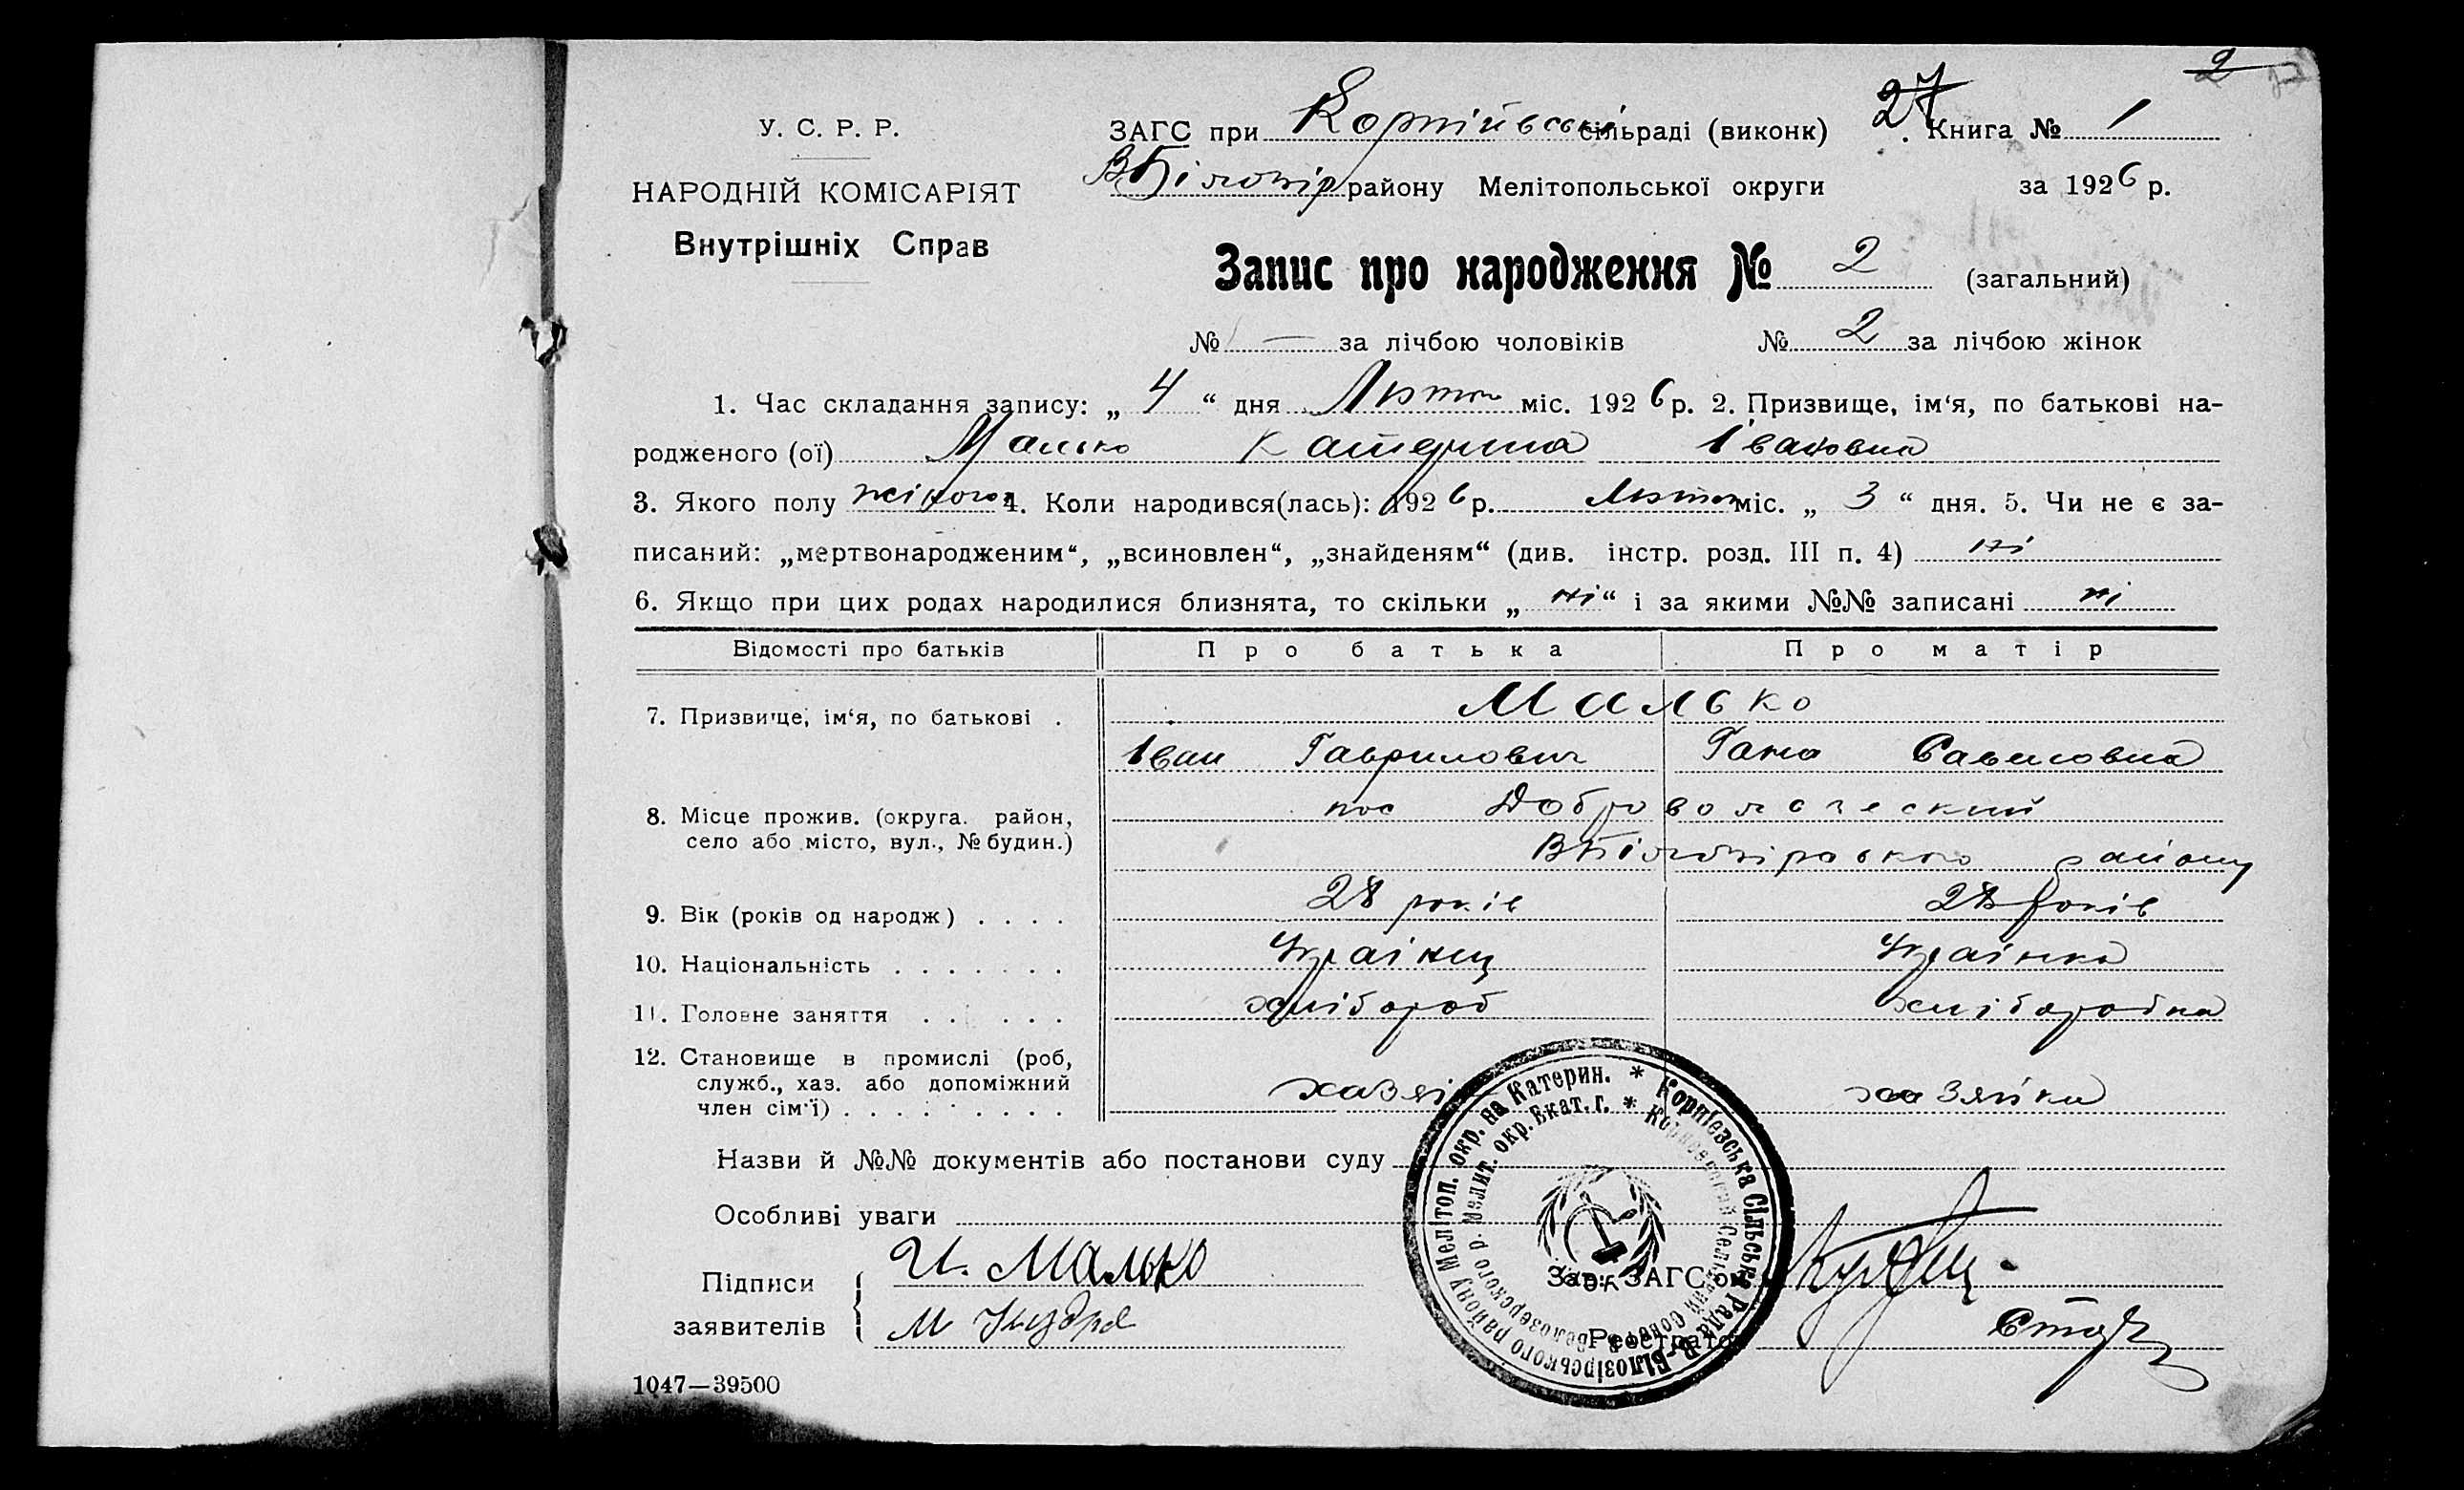 2
27
У. С. Р. Р.
НАРОДНІЙ КОМІСАРІЯТ
Внутрішніх Справ
ЗАГС при Корпіївські сільраді (виконк) Книга № 1
ВБілозір району Мелітопольської округи за 1926 р.
Запис про народження № 2 (загальний)
№ — за лічбою чоловіків № 2 за лічбою жінок
1. Час складання запису: „ 4 “ дня Лютого міс. 1926 р. 2. Призвище, ім‘я, по батькові на-
родженого (ої) Малько Катерина Івановна
3. Якого полу жіночої 4. Коли народився(лась): 1926 р. Лютого міс. „ 3 “ дня. 5. Чи не є за-
писаний: „мертвонародженим“, „всиновлен“, „знайденям“ (див. інстр. розд. III п. 4) ні
6. Якщо при цих родах народилися близнята, то скільки „ ні “ і за якими №№ записані ні
Відомості про батьків Про батька Про матір
7. Призвище, ім‘я, по батькові . Малько
Іван Гаврилович Гана Савеловна
8. Місце прожив. (округа. район, пос Добровольческий
село або місто, вул., № будин.) ВБілозірського району
9. Вік (років од народж) . . . . 28 років 28 років
10. Національність . . . . . . . Українец Українка
11. Головне заняття . . . . . . хлібороб хлібородка
12. Становище в промислі (роб,
служб., хаз. або допоміжний хазяїн хазяйка
член сім‘ї) . . . . . . . . .
Назви й №№ документів або постанови суду
Особливі уваги
Підписи И. Малько
заявителів М
Зав. ЗАГС‘ом
Реєстратор
Корпієвська Сільська Рада В-Білозірського району Мелітоп. окр. на Катерин. *
Сельский Совет В-Белозерского р. Мелит. окр. Екат. г. *
1047—39500